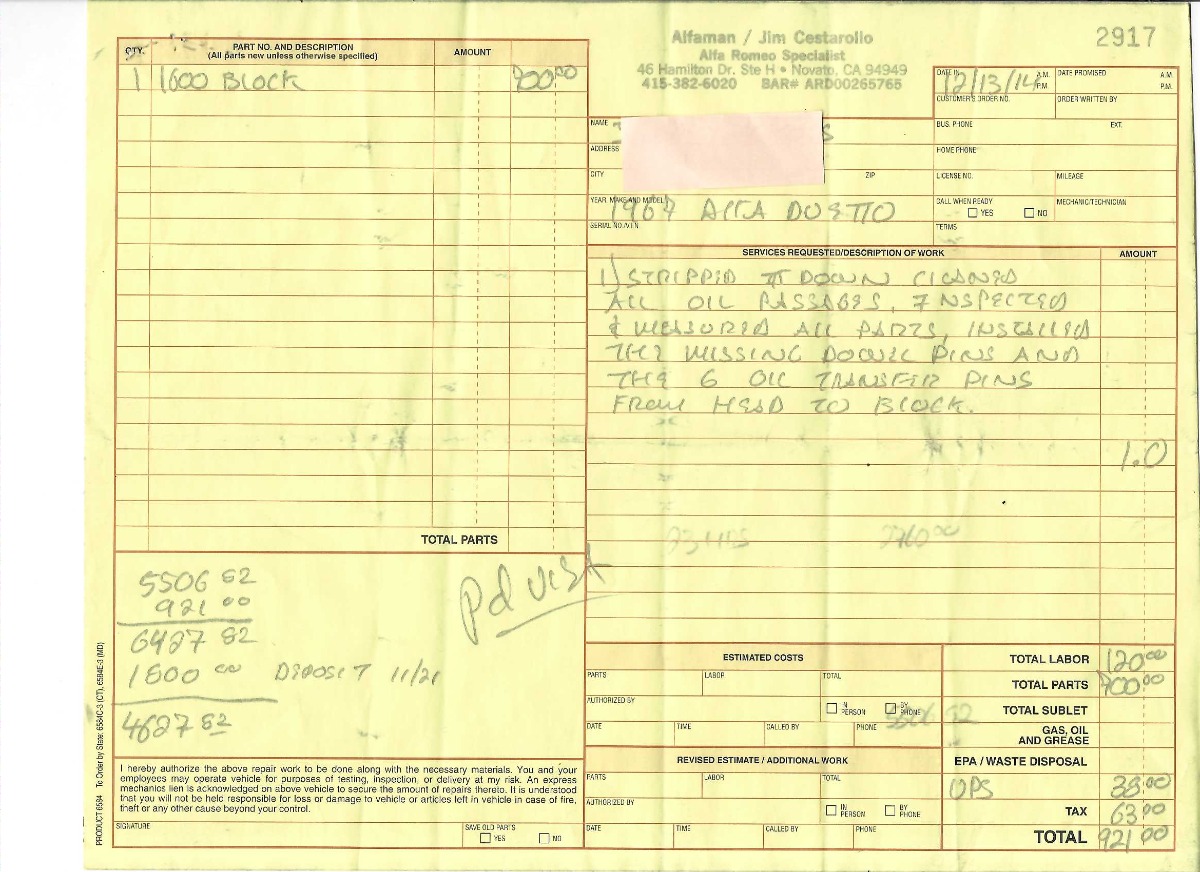 Alfaman / Jim Cestarollo
Alfa Romeo Specialist
46 Hamilton Dr. Ste H • Novato, CA 94949
415-382-6020 BAR# ARD00265765
2917
QTY. PART NO. AND DESCRIPTION AMOUNT
(All parts new unless otherwise specified)
1 1600 BLOCK 700.00
TOTAL PARTS
DATE IN 12/13/14 A.M. P.M. DATE PROMISED A.M. P.M.
CUSTOMER'S ORDER NO. ORDER WRITTEN BY
NAME BUS. PHONE EXT.
ADDRESS HOME PHONE
CITY ZIP LICENSE NO. MILEAGE
YEAR, MAKE AND MODEL 1967 ALFA DUETTO CALL WHEN READY YES NO MECHANIC/TECHNICIAN
SERIAL NO./V.I.N. TERMS
SERVICES REQUESTED/DESCRIPTION OF WORK AMOUNT
1) STRIPPED IT DOWN CLEANED
ALL OIL PASSAGES, INSPECTED
& MEASURED ALL PARTS, INSTALLED
THE MISSING DOWEL PINS AND
THE 6 OIL TRANSFER PINS
FROM HEAD TO BLOCK.
1.0
23 HRS 2760.00
5506 82
921 00
6427 82
1800 00 DEPOSIT 11/21
4627 82
Pd VISA
ESTIMATED COSTS
PARTS LABOR TOTAL
AUTHORIZED BY IN PERSON BY PHONE
5506 82
DATE TIME CALLED BY PHONE
REVISED ESTIMATE / ADDITIONAL WORK
PARTS LABOR TOTAL
AUTHORIZED BY IN PERSON BY PHONE
DATE TIME CALLED BY PHONE
TOTAL LABOR 120.00
TOTAL PARTS 700.00
TOTAL SUBLET
GAS, OIL
AND GREASE
EPA / WASTE DISPOSAL
UPS 38.00
TAX 63.00
TOTAL 921.00
I hereby authorize the above repair work to be done along with the necessary materials. You and your
employees may operate vehicle for purposes of testing, inspection, or delivery at my risk. An express
mechanics lien is acknowledged on above vehicle to secure the amount of repairs thereto. It is understood
that you will not be held responsible for loss or damage to vehicle or articles left in vehicle in case of fire,
theft or any other cause beyond your control.
SIGNATURE SAVE OLD PARTS YES NO
PRODUCT 6584 To Order by State: 6584C-3 (CT), 6584E-3 (MD)